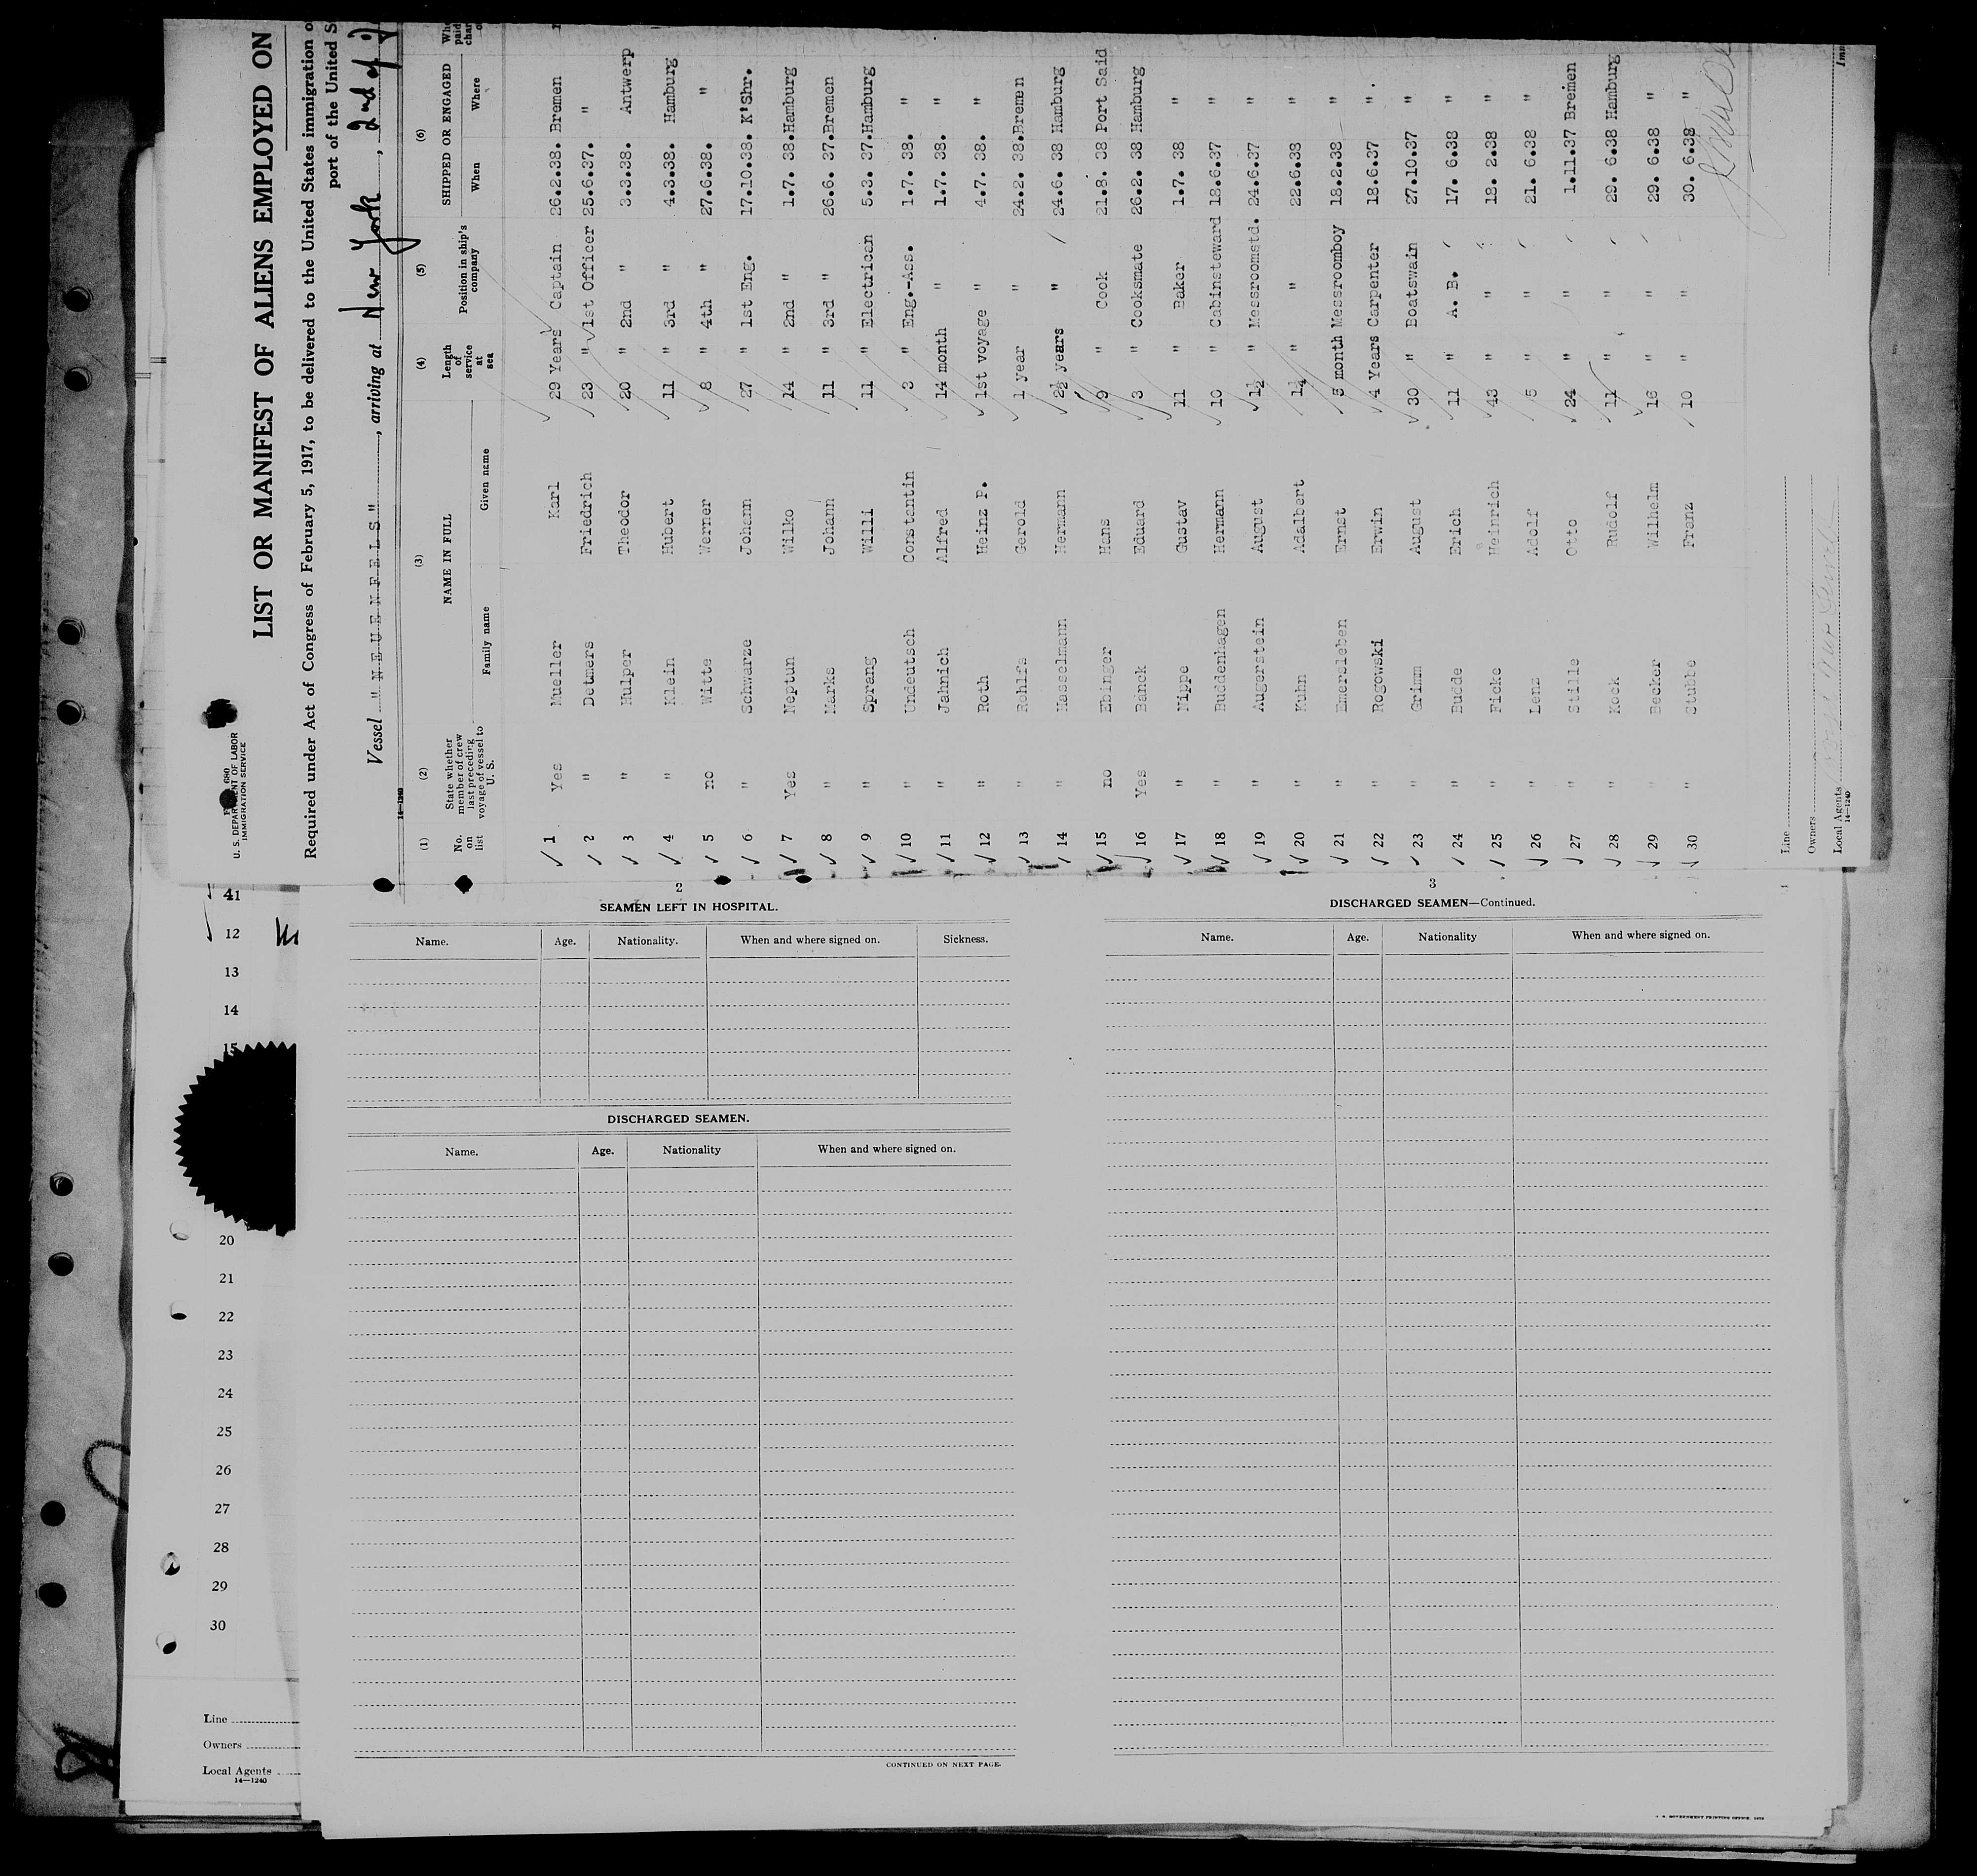 FORM 680
U. S. DEPARTMENT OF LABOR
IMMIGRATION SERVICE
LIST OR MANIFEST OF ALIENS EMPLOYED ON
Required under Act of Congress of February 5, 1917, to be delivered to the United States immigration o
port of the United S
Vessel " N E U E N F E L S ", arriving at New York, 2nd of
14—1240
(1) (2) (3) (4) (5) (6)
No. on list
State whether member of crew last preceding voyage of vessel to U. S.
NAME IN FULL
Family name Given name
Length of service at sea
Position in ship's company
SHIPPED OR ENGAGED
When Where
1 Yes Mueller Karl 29 Years Captain 26.2.38. Bremen
2 " Detmers Friedrich 23 " 1st Officer 25.6.37. "
3 " Hulper Theodor 20 " 2nd " 3.3.38. Antwerp
4 " Klein Hubert 11 " 3rd " 4.3.38. Hamburg
5 no Witte Werner 8 " 4th " 27.6.38. "
6 " Schwarze Johann 27 " 1st Eng. 17.10.38. K'Shr.
7 Yes Neptun Wilko 14 " 2nd " 1.7. 38.Hamburg
8 " Marks Johann 11 " 3rd " 26.6. 37.Bremen
9 " Sprang Willi 11 " Electrican 5.3. 37.Hamburg
10 " Undeutsch Constantin 3 " Eng.-Ass. 1.7. 38. "
11 " Jahnich Alfred 14 month " 1.7. 38. "
12 " Roth Heinz P. 1st voyage " 4.7. 38. "
13 " Rohlfs Gerold 1 year " 24.2. 38.Bremen
14 " Hasselmann Hermann 2½ years " 24.6. 38 Hamburg
15 no Ebinger Hans 9 " Cook 21.8. 38 Port Said
16 Yes Banck Eduard 3 " Cooksmate 26.2. 38 Hamburg
17 " Nippe Gustav 11 " Baker 1.7. 38 "
18 " Buddenhagen Hermann 10 " Cabinsteward 18.6.37 "
19 " Augerstein August 1½ " Messroomstd. 24.6.37 "
20 " Kuhn Adalbert 1¼ " " 22.6.38 "
21 " Emersleben Ernst 5 month Messroomboy 18.2.38 "
22 " Rogowski Erwin 4 Years Carpenter 18.6.37 "
23 " Grimm August 30 " Boatswain 27.10.37 "
24 " Budde Erich 11 " A. B. 17. 6.38 "
25 " Ficke Heinrich 43 " " 18. 2.38 "
26 " Lenz Adolf 5 " " 21. 6.38 "
27 " Stille Otto 24 " " 1.11.37 Bremen
28 " Kock Rudolf 11 " " 29. 6.38 Hamburg
29 " Becker Wilhelm 16 " " 29. 6.38 "
30 " Stubbe Franz 10 " " 30. 6.38 "
Line
Owners
Local Agents
14—1240
2
SEAMEN LEFT IN HOSPITAL.
Name. Age. Nationality. When and where signed on. Sickness.
DISCHARGED SEAMEN.
Name. Age. Nationality When and where signed on.
CONTINUED ON NEXT PAGE.
3
DISCHARGED SEAMEN—Continued.
Name. Age. Nationality When and where signed on.
U. S. GOVERNMENT PRINTING OFFICE
12
13
14
15
20
21
22
23
24
25
26
27
28
29
30
Line
Owners
Local Agents
14—1240